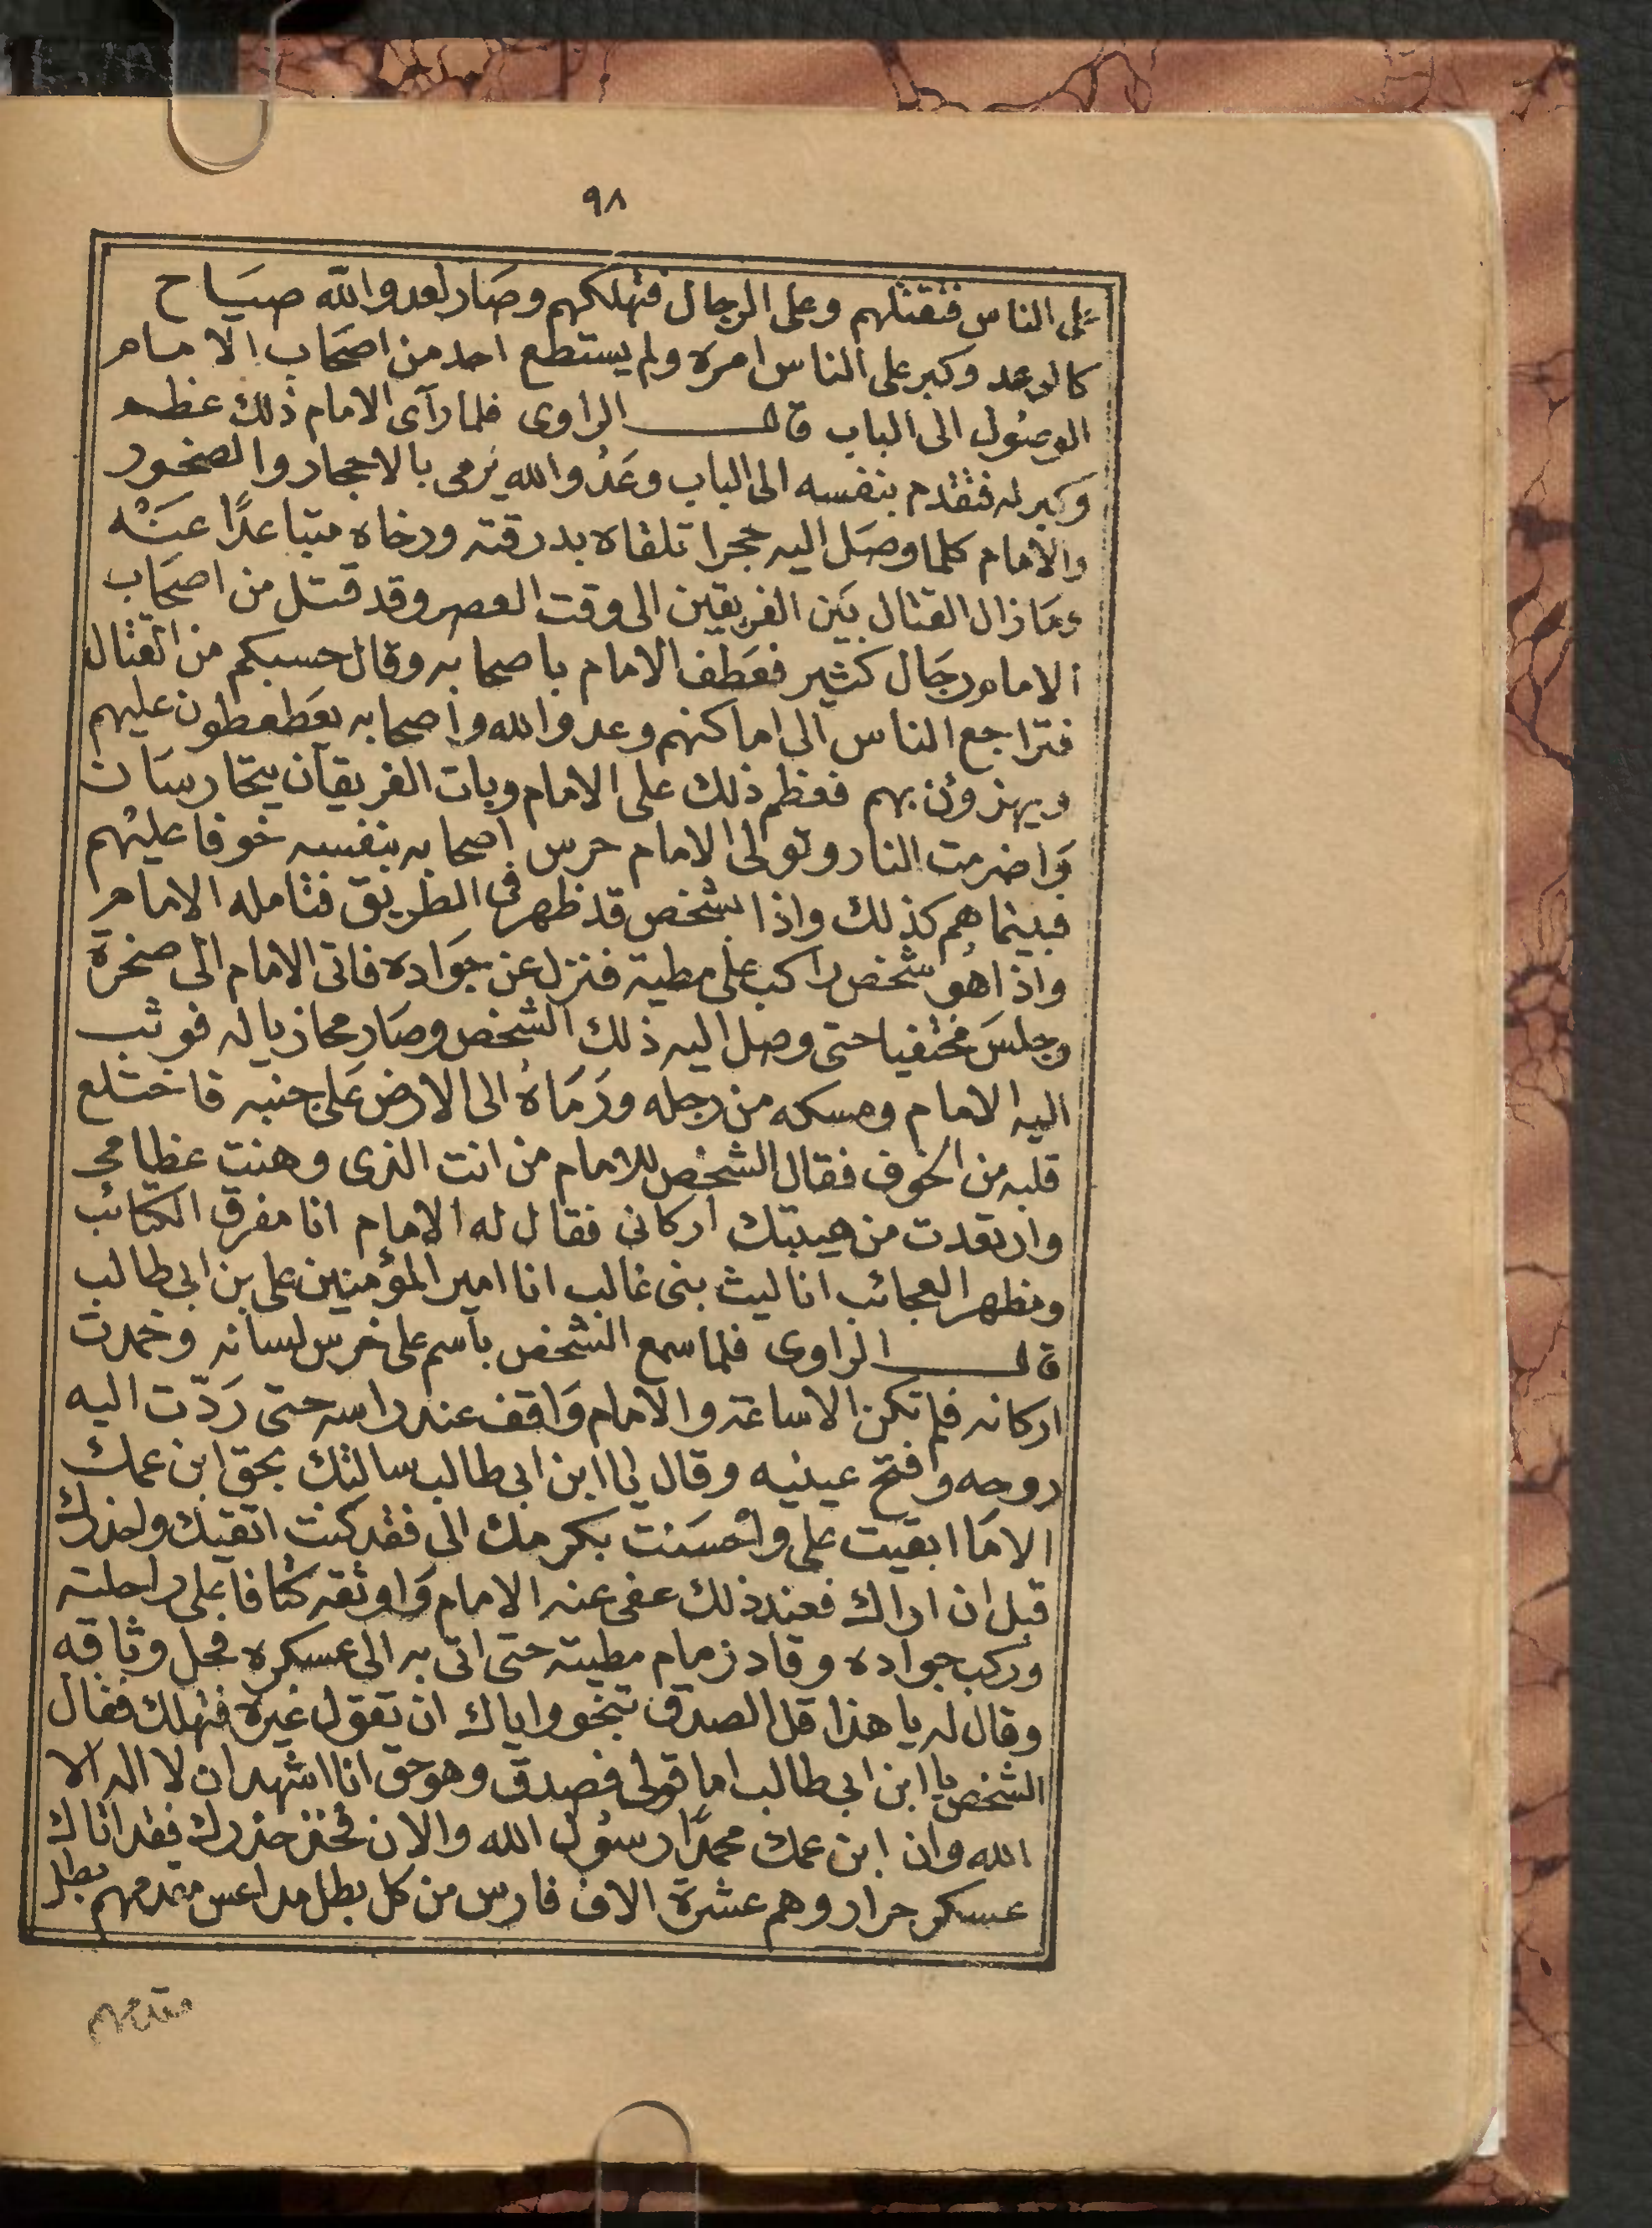 ٩٨
على الناس فتقتلهم وعلى الرجال فتهلكهم وصَار لعدو الله صيَاح
كالرعد وكبر على الناس امره ولم يستطع احد من اصحَاب الامام
الوصُول الى الباب قال الراوى فلما رآى الامام ذلك عظم
وَكبر له فتقدم بنفسه الى الباب وعَدُو الله يَرمى بالاحجار والصخور
والامام كلما وصَل اليه حجرا تلقاه بدرقته ورخاه متباعدًا عنَهْ
ومَا زال القتال بَين الفريقين الى وقت العصر وقد قتل من اصحَاب
الامام رجَال كثير فعَطف الامام باصحابه وقال حسبكم من القتال
فتراجع الناس الى اماكنهم وعدو الله واصحابه يعَطعطون عليهم
ويهزؤن بهم فعظم ذلك على الامام وبات الفريقان يتحارسَان
وَاضرمت النار وتولى الامام حرس اصحابه بنفسه خوفا عليهم
فبينما هم كذلك واذا بشخص قد ظهر فى الطريق فتامله الامام
واذا هو شخص راكب على مطية فنزل عن جوَاده فاتى الامام الى صخرة
وجلسَ مختفيا حتى وصل اليه ذلك الشخص وصَار محاذيا له فوثب
اليه الامام ومسكه من رجله ورَمَاهُ الى الارض عَلى جنبه فاختلع
قلبه من الخوف فقال الشخص للامام من انت الذى وهنت عظامى
وارتعدت من هيبتك اركانى فقال له الامام انا مفرق الكتائب
ومظهر العجائب انا ليث بنى غالب انا امير المؤمنين على بن ابى طالب
قال الراوى فلما سمع الشخص باسم على خرس لسانه وخمدت
اركانه فلم تكن الا ساعة والامام وَاقف عند راسه حتى رَدّت اليه
روحه وافتح عينيه وقال يا ابن ابى طالب سالتك بحق ابن عمك
الا مَا ابقيت على واحْسَنْت بكرمك الى فقد كنت اتقيك واحذرك
قبل ان اراك فعند ذلك عفى عنه الامام وَاوثقه كتافا على راحلته
وركب جواده وقاد زمام مطيته حتى اتى به الى عسكره فحل وثاقه
وقال له يا هذا قل الصدق تنجو واياك ان تقول غيره فتهلك فقال
الشخص يا ابن ابى طالب اما قولى فصدق وهو حق انا اشهد ان لا اله الا
الله وان ابن عمك محمدًا رسُول الله والان فخذ حذرك فقد اتاك
عسكر جرار وهم عشرة الاف فارس من كل بطل مداعس مقدمهم بطل
مقدمهم